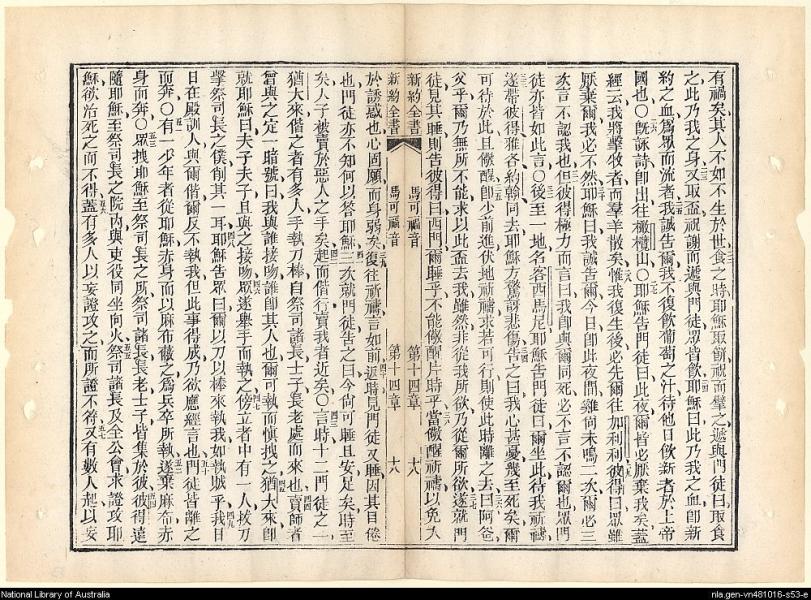 有禍矣其人不如不生於世食之時耶穌取餅祝而擘之遞與門徒曰取食
之此乃我之身又取盃祝謝而遞與門徒眾皆飲耶穌曰此乃我之血卽新
約之血爲眾而流者我誠告爾我不復飲葡萄之汁待他日飲新者於上帝
國也〇旣詠詩卽出往橄欖山〇耶穌告門徒曰此夜爾皆必厭棄我矣蓋
經云我將擊牧者而羣羊散矣惟我復生後必先爾往加利利彼得曰眾雖
厭棄爾我必不然耶穌曰我誠告爾今日卽此夜間雞尚未鳴二次爾必三
次言不認我也但彼得極力而言曰我卽與爾同死必不言不認爾也眾門
徒亦皆如此言〇後至一地名客西馬尼耶穌告門徒曰爾坐此待我祈禱
遂帶彼得雅各約翰同去耶穌方驚訝悲傷告之曰我心甚憂幾至死矣爾
可待於此且儆醒卽少前進伏地祈禱求若可行則使此時離之去曰阿爸
父乎爾乃無所不能求以此盃去我雖然非從我所欲乃從爾所欲遂就門
徒見其睡則告彼得曰西門爾睡乎不能儆醒片時乎當儆醒祈禱以免入
新約全書 馬可福音 第十四章 十八
新約全書 馬可福音 第十四章 十八
於誘惑也心固願而身弱矣復往祈禱言如前返時見門徒又睡因其目倦
也門徒亦不知何以答耶穌三次就門徒告之曰今尚可睡且安足矣時至
矣人子被賣於惡人之手矣起而偕行賣我者近矣〇言時十二門徒之一
猶大來偕之者有多人手執刀棒自祭司諸長士子長老處而來也賣師者
曾與之定一暗號曰我與誰接吻誰卽其人也爾可執而愼拽之猶大來卽
就耶穌曰夫子夫子且與之接吻眾遂舉手而執之傍立者中有一人拔刀
擊祭司長之僕削其一耳耶穌告眾曰爾以刀以棒來執我如執賊乎我日
日在殿訓人與爾偕爾反不執我但此事得成乃欲應經言也門徒皆離之
而奔〇有一少年者從耶穌赤身而以麻布蔽之爲兵卒所執遂棄麻布赤
身而奔〇眾拽耶穌至祭司長之所祭司諸長長老士子皆集於彼彼得遠
隨耶穌至祭司長之院內與吏役同坐向火祭司諸長及全公會求證攻耶
穌欲治死之而不得蓋有多人以妄證攻之而所證不符又有數人起以妄
National Library of Australia
nla.gen-vn481016-s53-e